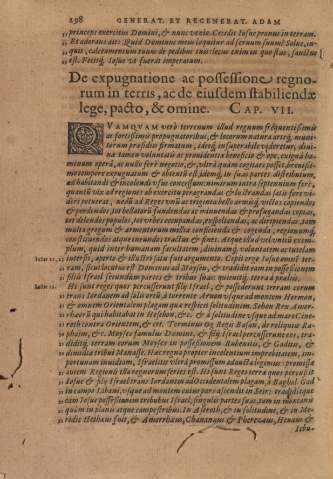 298 GENERAT. ET REGENERAT. ADAM
princeps exercitus Domini, & nunc venio. Cecidit Iosue pronus in terram.
Et adorans ait: Quid Dominus meus loquitur ad servum suum? Solue, in-
quit, calceamentum tuum de pedibus tuis: locus enim in quo stas, sanctus
est. Fecitq́; Iosue vt fuerat imperatum.
De expugnatione ac possessione regno-
rum in terris, ac de eiusdem stabiliendæ
lege, pacto, & omine. CAP. VII.
QVAMQVAM verò terrenum illud regnum frequentissimis
ac fortissimis propugnatoribus, & locorum natura artéq́; muni-
torum præsidiis firmatum, idéq́; insuperabile videretur, diui-
na tamen voluntatis ac prouidentiæ beneficio & ope, exigua ho-
minum opera, ac nullo ferè negotio, & vltrà quàm cogitari posset, breuissi-
mo tempore expugnatum & obtentum est,
ad habitandū & incolendū vsu concessum; nimirum intra septennium ferè,
quanti vix ad regiones ab exercitu peragrandas & lustrandas satis fore vi-
deri poterat, nedū ad Reges vnū ac triginta bello armisq́; victos capiendos
& perdendos
multa gregum & armentorum multa
constituendos atque
plum, quid inter humanam facultatem, diuinamq́; voluntatem actutelam
intersit, aperto & illustri satis fuit argumento. Cepit ergo Iosue omnē ter-
ram, sicut locutus est Dominus ad Moysen, & tradidit eam in possessionem
filiis Israel secundum partes & tribus suas: quieuitq́; terra à prælijs.
Iosue 12. Hi sunt reges quos percusserunt filij Israel, & possederunt terram eorum
trans Iordanem ad solis ortū, à torrente Arnon vsque ad montem Hermon,
& omnem Orientalem plagam quæ respicit solitudinem. Sehon Rex Amor-
rhæorū qui habitabat in Hesebon, &c. & à solitudine vsque ad mare Cene-
reth contra Orientem, & cet. Terminus Og Regis Basan, de reliquiis Ra-
phaim, &c. Moyses famulus Domini, & filij Israel percusserunt eos, tra-
diditq́; terram eorum Moyses in possessionem Rubenitis, & Gaditis, &
dimidiæ tribui Manasse.
Iosue & filij Israel trans Iordanem ad Occidentalem plagam, à Baalgad
in campo Libani, vsque ad montem cuius pars ascendit in Seir: tradiditque
eam Iosue possessionem tribubus Israel, singulis partes suas, tam in montanis
quàm in planis atque campestribus. In Aseroth, & in solitudine, & in Me-
ridie Hethæus fuit, & Amorrhæus, Chananæus & Pherezæus, Heuæus &
Iebu-